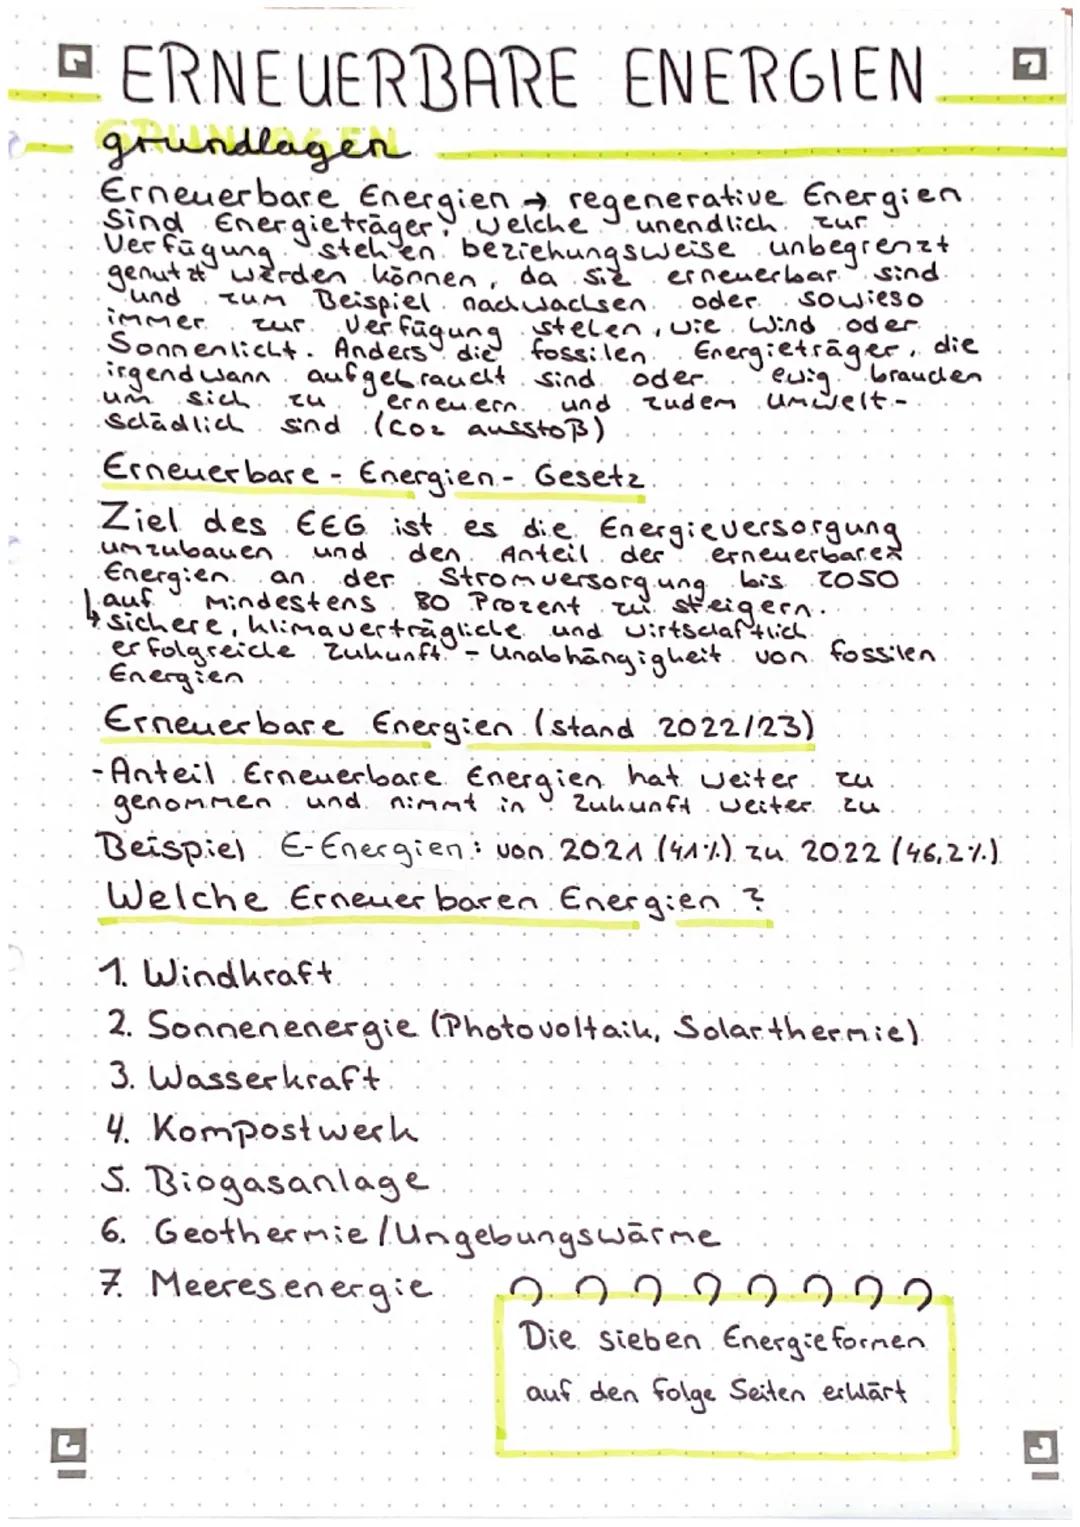 ERNEUERBARE ENERGIEN
grundlagen
Erneuerbare Energien → regenerative Energien
Sind Energieträger, welche unendlich zur
Verfügung stehen beziehungsweise unbegrenzt
genutzt werden können, da sie erneuerbar sind
und zum Beispiel nachwachsen oder sowieso
immer zur Verfügung stehen, wie Wind oder
Sonnenlicht. Anders die fossilen Energieträger, die
irgendwann aufgebraucht sind oder ewig brauchen
um sich zu erneuern und zudem umwelt-
schädlich sind (CO2 ausstoß)
Erneuerbare-Energien-Gesetz
Ziel des EEG ist es die Energieversorgung
umzubauen und den Anteil der erneuerbaren
Energien an der Stromversorgung bis 2050
auf mindestens 80 Prozent zu steigern.
↳ sichere, klimaverträgliche und wirtschaftlich
erfolgreiche Zukunft - Unabhängigkeit von fossilen
Energien
Erneuerbare Energien (stand 2022/23)
-Anteil Erneuerbare Energien hat weiter zu
genommen und nimmt in Zukunft weiter zu
Beispiel E-Energien: von 2021 (41%) zu 2022 (46,2%)
Welche Erneuerbaren Energien?
1. Windkraft
2. Sonnenenergie (Photovoltaik, Solarthermie)
3. Wasserkraft
4. Kompostwerk
5. Biogasanlage
6. Geothermie/Umgebungswärme
7. Meeresenergie
Die sieben Energieformen
auf den folge Seiten erklärt